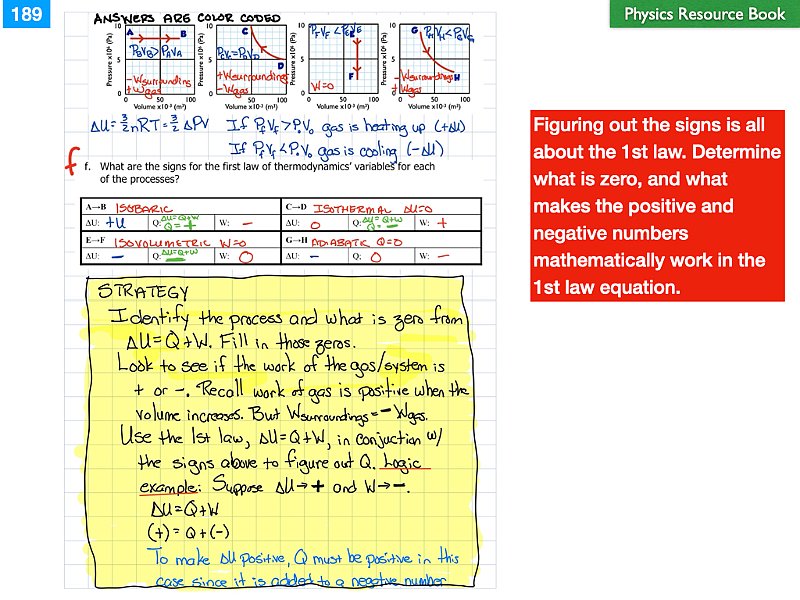 189
Physics Resource Book
ANSWERS ARE COLOR CODED
10 A B
PBVB>PAVA
-Wsurrounding
+Wgas
Pressure x10⁵ (Pa)
5
0
0 50 100
Volume x10⁻³ (m³)
10 C
D
+Wsurroundings
-Wgas
Pressure x10⁵ (Pa)
5
0
0 50 100
Volume x10⁻³ (m³)
10
F
W=0
Pressure x10⁵ (Pa)
5
0
0 50 100
Volume x10⁻³ (m³)
10 G
H
-Wsurroundings
+Wgas
Pressure x10⁵ (Pa)
5
0
0 50 100
Volume x10⁻³ (m³)
ΔU=3/2nRT=3/2 ΔPV If PfVf>PoVo gas is heating up (+ΔU)
If PfVf<PoVo gas is cooling (-ΔU)
f
f. What are the signs for the first law of thermodynamics' variables for each
of the processes?
A→B ISOBARIC
ΔU: +U Q: ΔU=Q+W Q=+ W: -
C→D ISOTHERMAL ΔU=0
ΔU: 0 Q: ΔU=Q+W Q=- W: +
E→F ISOVOLUMETRIC W=0
ΔU: - Q: ΔU=Q+W - W: 0
G→H ADABATIC Q=0
ΔU: - Q: 0 W: -
STRATEGY
Identify the process and what is zero from
ΔU=Q+W. Fill in those zeros.
Look to see if the work of the gas/system is
+ or -. Recall work of gas is positive when the
volume increases. But Wsurroundings=-Wgas.
Use the 1st law, ΔU=Q+W, in conjuction w/
the signs above to figure out Q. Logic
example: Suppose ΔU→+ and W→-.
ΔU=Q+W
(+)=Q+(-)
To make ΔU positive, Q must be positive in this
case since it is added to a negative number
Figuring out the signs is all
about the 1st law. Determine
what is zero, and what
makes the positive and
negative numbers
mathematically work in the
1st law equation.